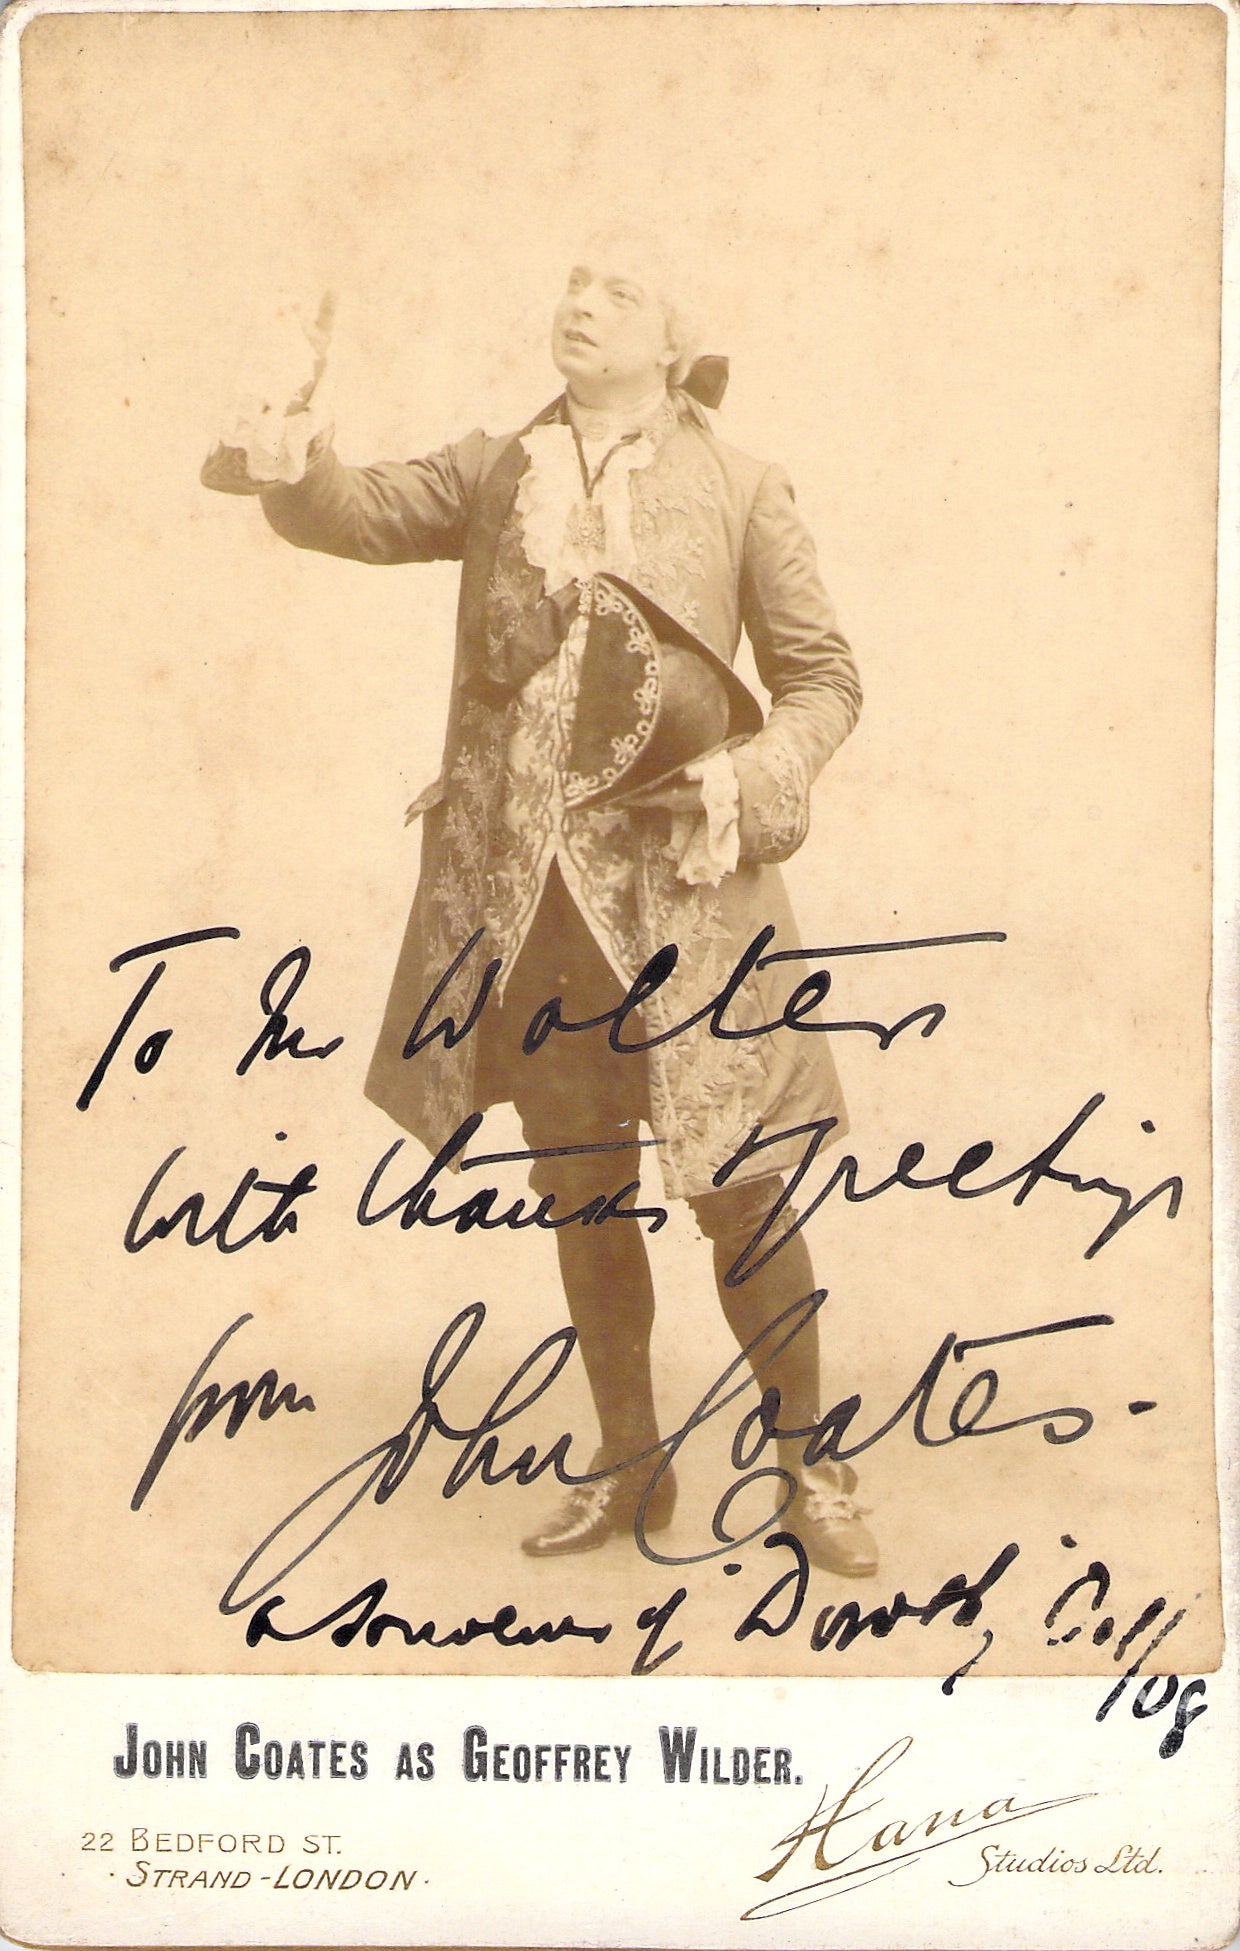 To Mr Wolters
with thanks & Greetings
from John Coates.
a souvenir of "Dorothy"
/08
JOHN COATES AS GEOFFREY WILDER.
22 BEDFORD ST.
· STRAND - LONDON ·
Hana
Studios Ltd.